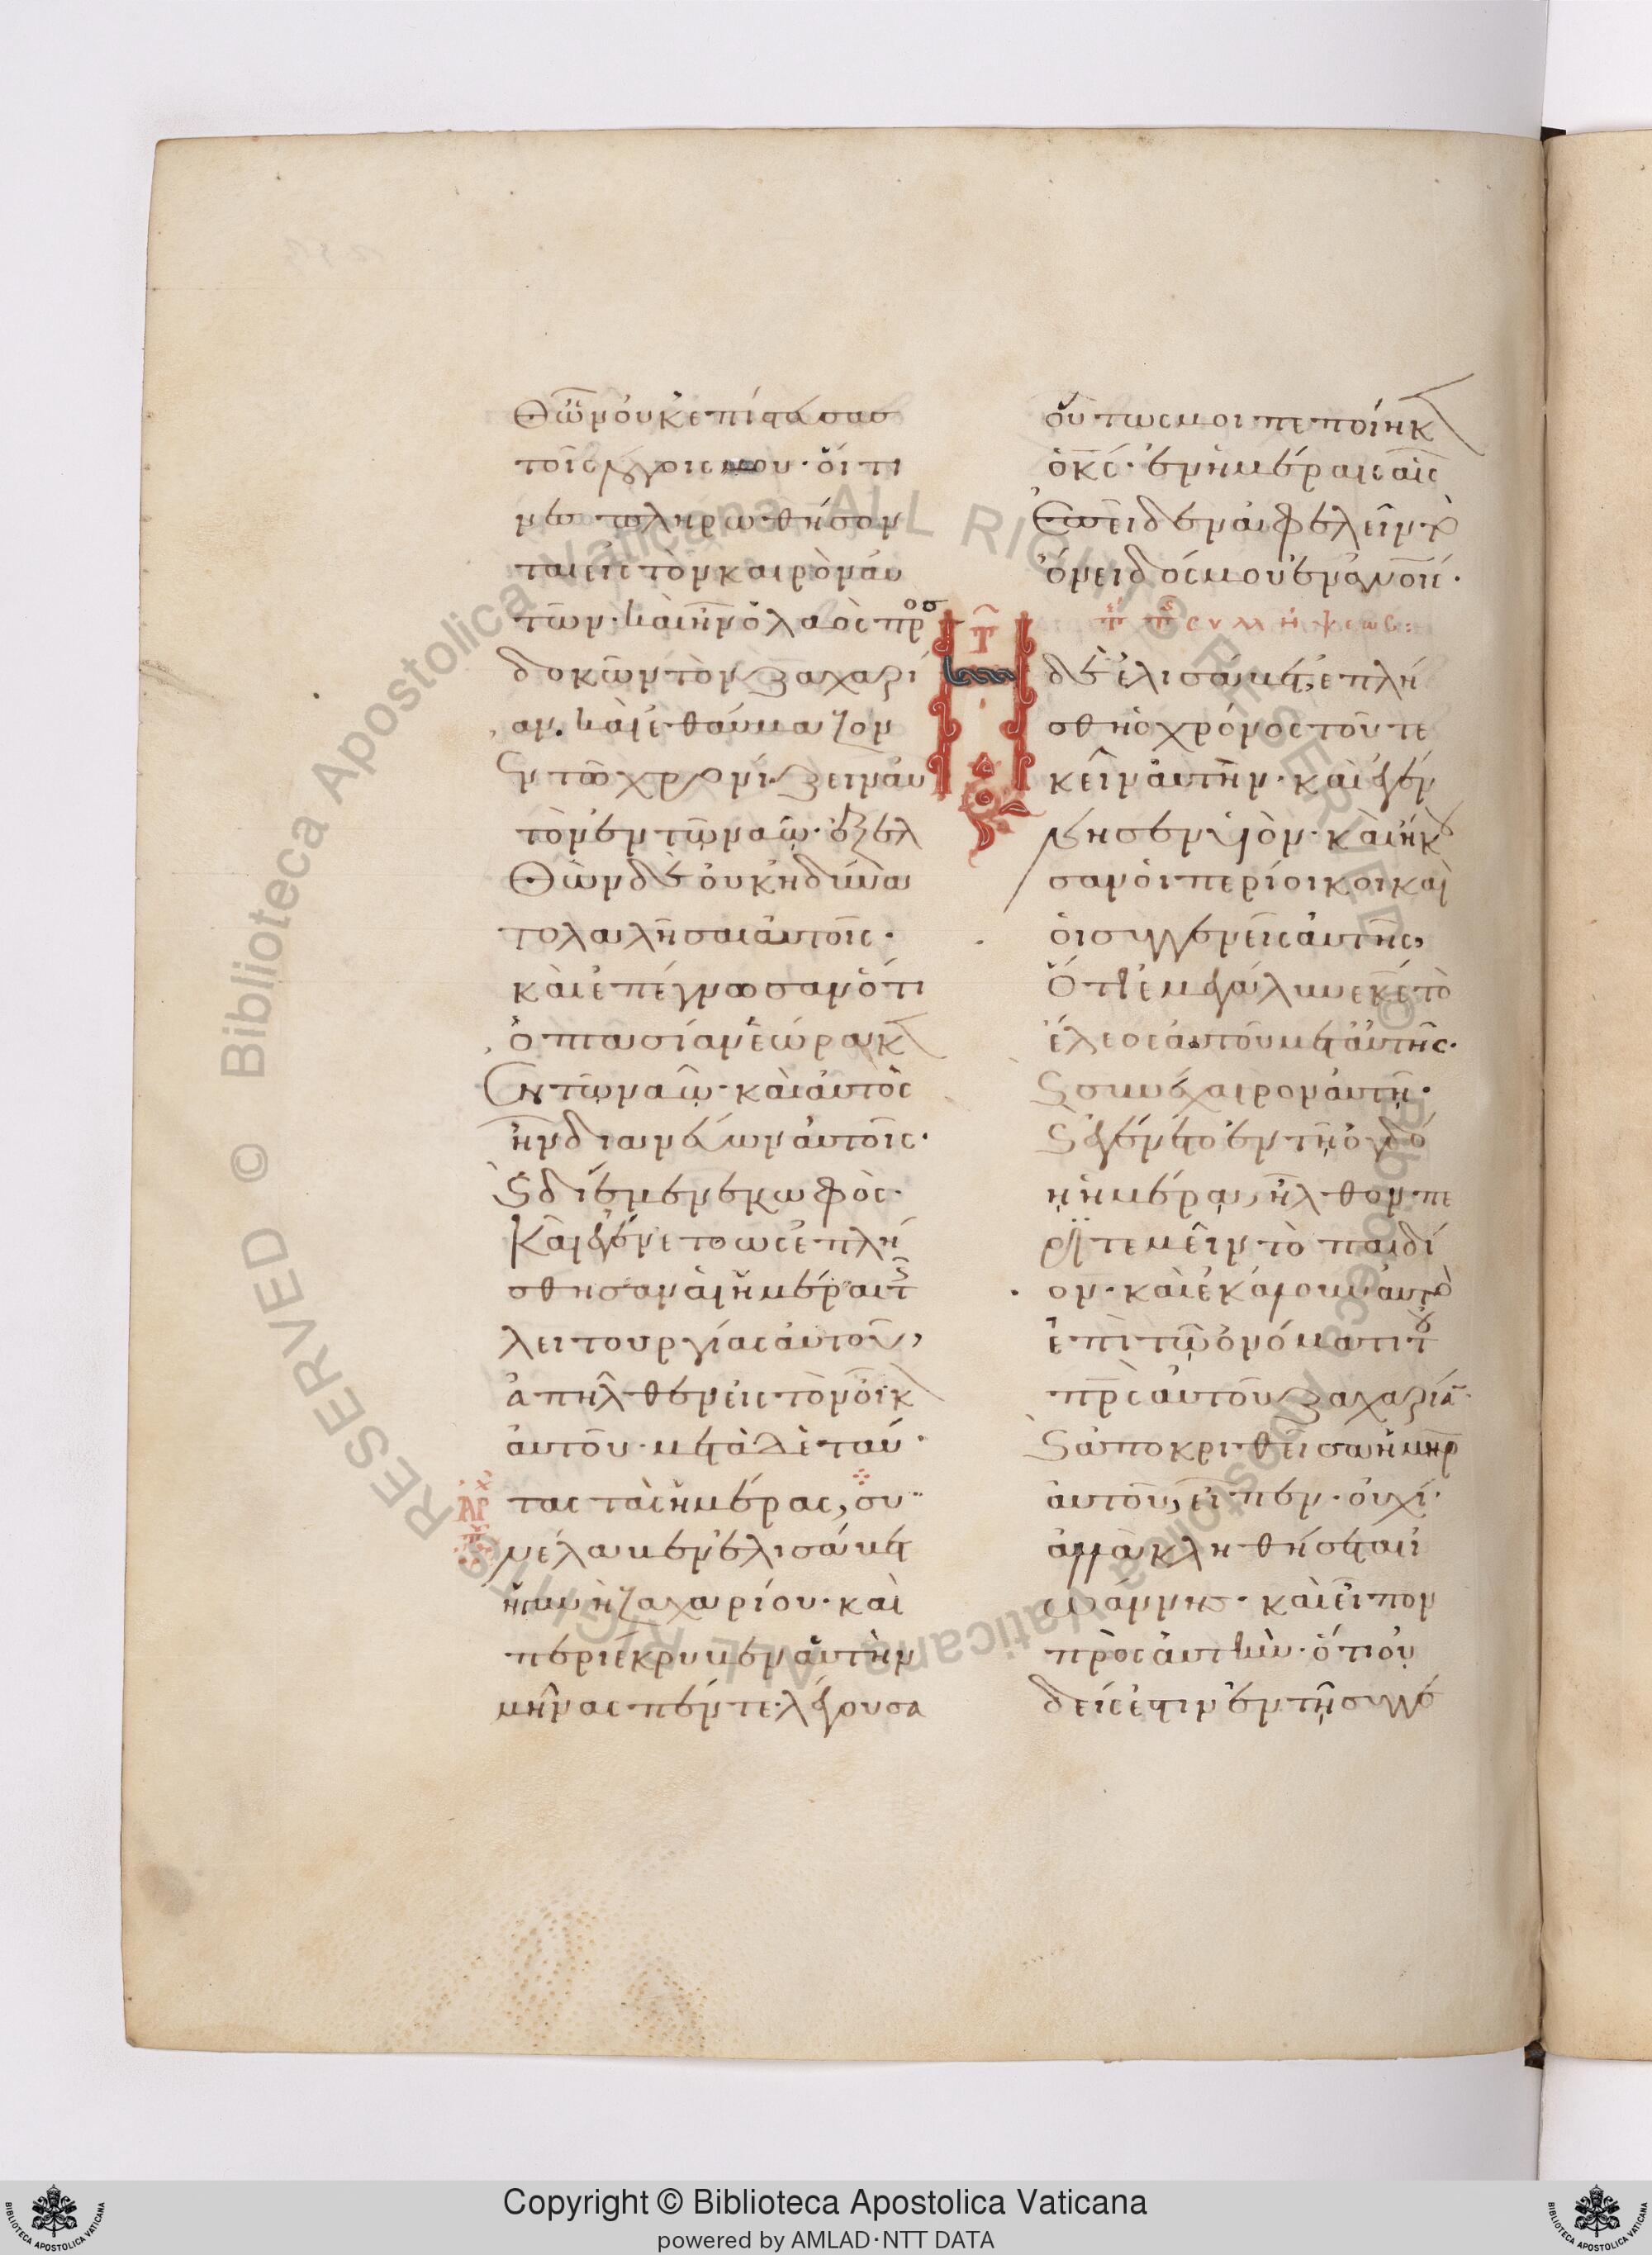 θῶν οὐκ ἐπίστευσασ
τοῖς λόγοις μου· οἵ τι
νεσ πληρωθήσον
ται εἰς τὸν καιρὸν αὐ
τῶν· καὶ ἦν ὁ λαὸς προσ
δοκῶν τὸν ζαχαρί
αν. καὶ ἐθαύμαζον
ἐν τῶ χρονίζειν αὐ
τὸν ἐν τῷ ναῷ· ἐξελ
θὼν δὲ οὐκ ἠδύνα
το λαλῆσαι αὐτοῖς·
καὶ ἐπέγνωσαν ὅτι
ὀπτασίαν ἑώρακ
ἐν τῷ ναῷ· καὶ αὐτὸς
ἦν διανεύων αὐτοῖς·
ϛ διέμενεν κωφὸς·
Καὶ ἐγένετο ὡς ἐπλή
σθησαν αἱ ἡμέραι τ
λειτουργίας αὐτοῦ,
ἀπῆλθεν εἰς τὸν οἶκ
αὐτοῦ· μετὰ δὲ ταύ
τας τὰς ἡμέρας, συ
νέλαβεν ἐλισάβετ
ἡ γυνὴ ζαχαρίου· καὶ
περιέκρυβεν αὐτὴν
μῆνας πέντε· λέγουσα
οὕτως μοι πεποίηκ
ὁ κς· ἐν ἡμέραις αἷς
ἐπεῖδεν ἀφελεῖν τὸ
ὄνειδός μου ἐν ἀνοις·
συλλήψεως:
Τ
δὲ ἐλισάβετ, ἐπλή
σθη ὁ χρόνος τοῦ τε
κεῖν αὐτὴν· καὶ ἐγέν
νησεν υἱὸν· καὶ ἤκου
σαν οἱ περίοικοι καὶ
οἱ συγγενεῖς αὐτῆς,
ὅτι ἐμεγάλυνε κς τὸ
ἔλεος αὐτοῦ μετ αὐτῆς·
ϛ συνέχαιρον αὐτῇ·
ϛ ἐγένετο ἐν τῇ ὀγδό
ῃ ἡμέρᾳ, ἦλθον πε
ριτεμεῖν τὸ παιδί
ον· καὶ ἐκάλουν αὐτὸ
ἐπὶ τῷ ὀνόματι του
πρς αὐτοῦ ζαχαρίαν
ϛ ἀποκριθεῖσα ἡ μηρ
αὐτοῦ, εἶπεν· οὐχί·
ἀλλὰ κληθήσεται ἰ
ωάννης· καὶ εἶπον
πρὸς αὐτὴν· ὅτι οὐ
δείς ἐστιν ἐν τῇ συγγε
ΑΡΧ
Copyright © Biblioteca Apostolica Vaticana
powered by AMLAD·NTT DATA